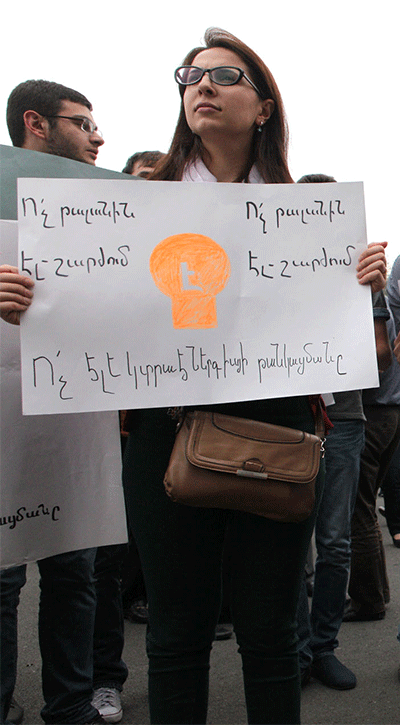 Ո՛չ թալանին Ո՛չ թալանին
Էլ-շարժում Էլ-շարժում
Է
Ո՛չ էլեկտրաէներգիայի թանկացմանը
ացմանը